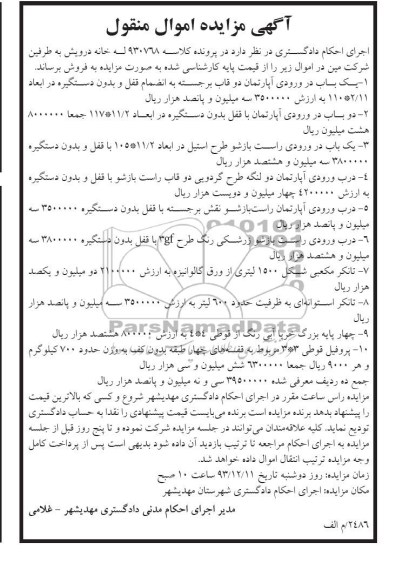 آگهی مزایده اموال منقول
اجرای احکام دادگستری در نظر دارد در پرونده کلاسه ۹۳۰۷۶۸ له خانه درویش به طرفین
شرکت مین در اموال زیر را از قیمت پایه کارشناسی شده به صورت مزایده به فروش برساند.
۱-یک باب در ورودی آپارتمان دو قاب برجسته به انضمام قفل و بدون دستگیره در ابعاد
۲/۱۱*۱۱۰ به ارزش ۳۵۰۰۰۰۰ سه میلیون و پانصد هزار ریال
۲- دو باب در ورودی آپارتمان با قفل بدون دستگیره در ابعاد ۱۱/۲*۱۱۷ جمعا ۸۰۰۰۰۰۰
هشت میلیون ریال
۳- یک باب در ورودی راست بازشو طرح استیل در ابعاد ۱۱/۲*۱۰۵ با قفل و بدون دستگیره
۳۸۰۰۰۰۰ سه میلیون و هشتصد هزار ریال
۴- درب ورودی آپارتمان دو لنگه طرح گردویی دو قاب راست بازشو با قفل و بدون دستگیره
به ارزش ۴۲۰۰۰۰۰ چهار میلیون و دویست هزار ریال
۵- درب ورودی آپارتمان راست‌بازشو نقش برجسته با قفل بدون دستگیره ۳۵۰۰۰۰۰ سه
میلیون و پانصد هزار ریال
۶- درب ورودی راست بازشو زرشکی رنگ طرح ۳gf با قفل بدون دستگیره ۳۸۰۰۰۰۰ سه
میلیون و هشتصد هزار ریال
۷- تانکر مکعبی شکل ۱۵۰۰ لیتری از ورق گالوانیزه به ارزش ۲۱۰۰۰۰۰ دو میلیون و یکصد
هزار ریال
۸- تانکر استوانه‌ای به ظرفیت حدود ۶۰۰ لیتر به ارزش ۳۵۰۰۰۰۰ سه میلیون و پانصد هزار
ریال
۹- چهار پایه بزرگ خرپا آبی رنگ از قوطی ۴*۴ به ارزش ۸۰۰۰۰۰ هشتصد هزار ریال
۱۰- پروفیل قوطی ۳*۳ مربوط به قفسه‌های چهار طبقه بدون کف به وزن حدود ۷۰۰ کیلوگرم
و هر ۹۰۰۰ ریال جمعا ۶۳۰۰۰۰۰ شش میلیون و سی هزار ریال
جمع ده ردیف معرفی شده ۳۹۵۰۰۰۰۰ سی و نه میلیون و پانصد هزار ریال
مزایده راس ساعت مقرر در اجرای احکام دادگستری مهدیشهر شروع و کسی که بالاترین قیمت
را پیشنهاد بدهد برنده مزایده است برنده می‌بایست قیمت پیشنهادی را نقدا به حساب دادگستری
تودیع نماید. کلیه علاقه‌مندان می‌توانند در جلسه مزایده شرکت نموده و تا پنج روز قبل از جلسه
مزایده به اجرای احکام مراجعه تا ترتیب بازدید آن داده شود بدیهی است پس از پرداخت کامل
وجه مزایده ترتیب انتقال اموال داده خواهد شد.
زمان مزایده: روز دوشنبه تاریخ ۹۳/۱۲/۱۱ ساعت ۱۰ صبح
مکان مزایده: اجرای احکام دادگستری شهرستان مهدیشهر
مدیر اجرای احکام مدنی دادگستری مهدیشهر - غلامی
۲۴۸۶/م الف